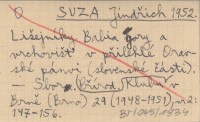 O SUZA Jindřich 1952.
Lišejníky Babia gory a
vrchovišť v přilehlé Orav-
ské pánvi (slovenské části).
— Sbor. Přírod. Klubu v
Brně (Brno) 29 (1948-1951),
147-156.